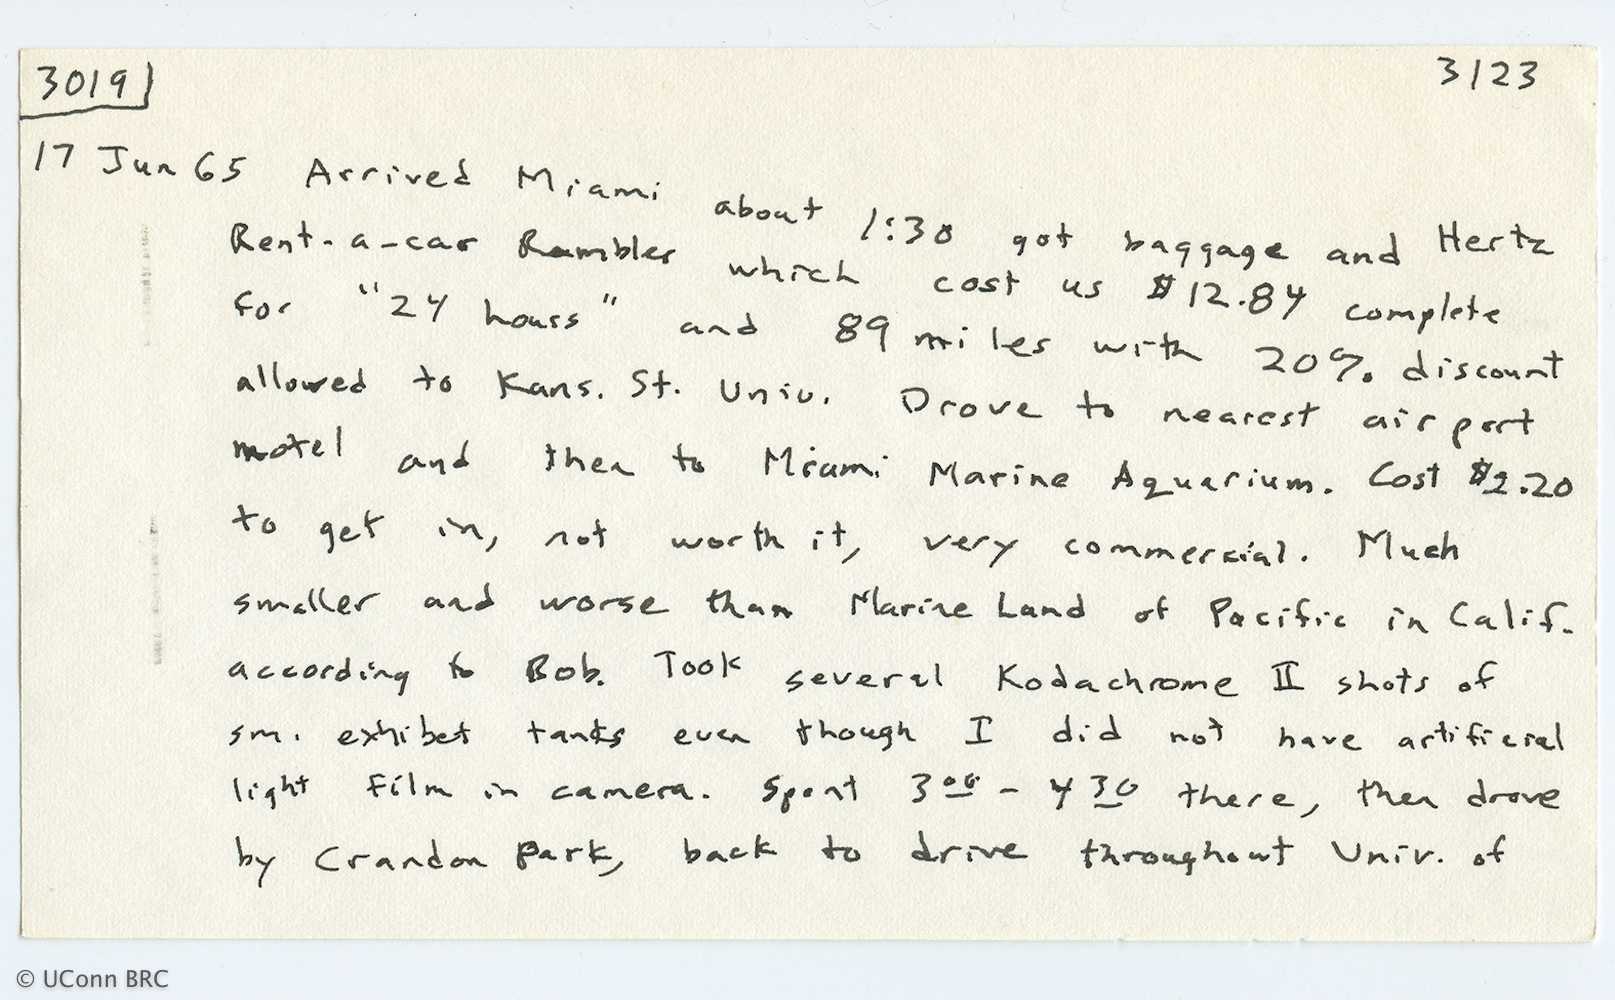 3019
3123
17 Jun 65 Arrived Miami about 1:30 got baggage and Hertz
Rent-a-car Rambler which cost us $12.84 complete
for "24 hours" and 89 miles with 20% discount
allowed to Kans. St. Univ. Drove to nearest airport
motel and then to Miami Marine Aquarium. Cost $2.20
to get in, not worth it, very commercial. Much
smaller and worse than Marine Land of Pacific in Calif.
according to Bob. Took several Kodachrome II shots of
sm. exhibet tanks even though I did not have artificial
light film in camera. Spent 3 00 - 4 30 there, then drove
by Crandon Park, back to drive throughout Univ. of
© UConn BRC